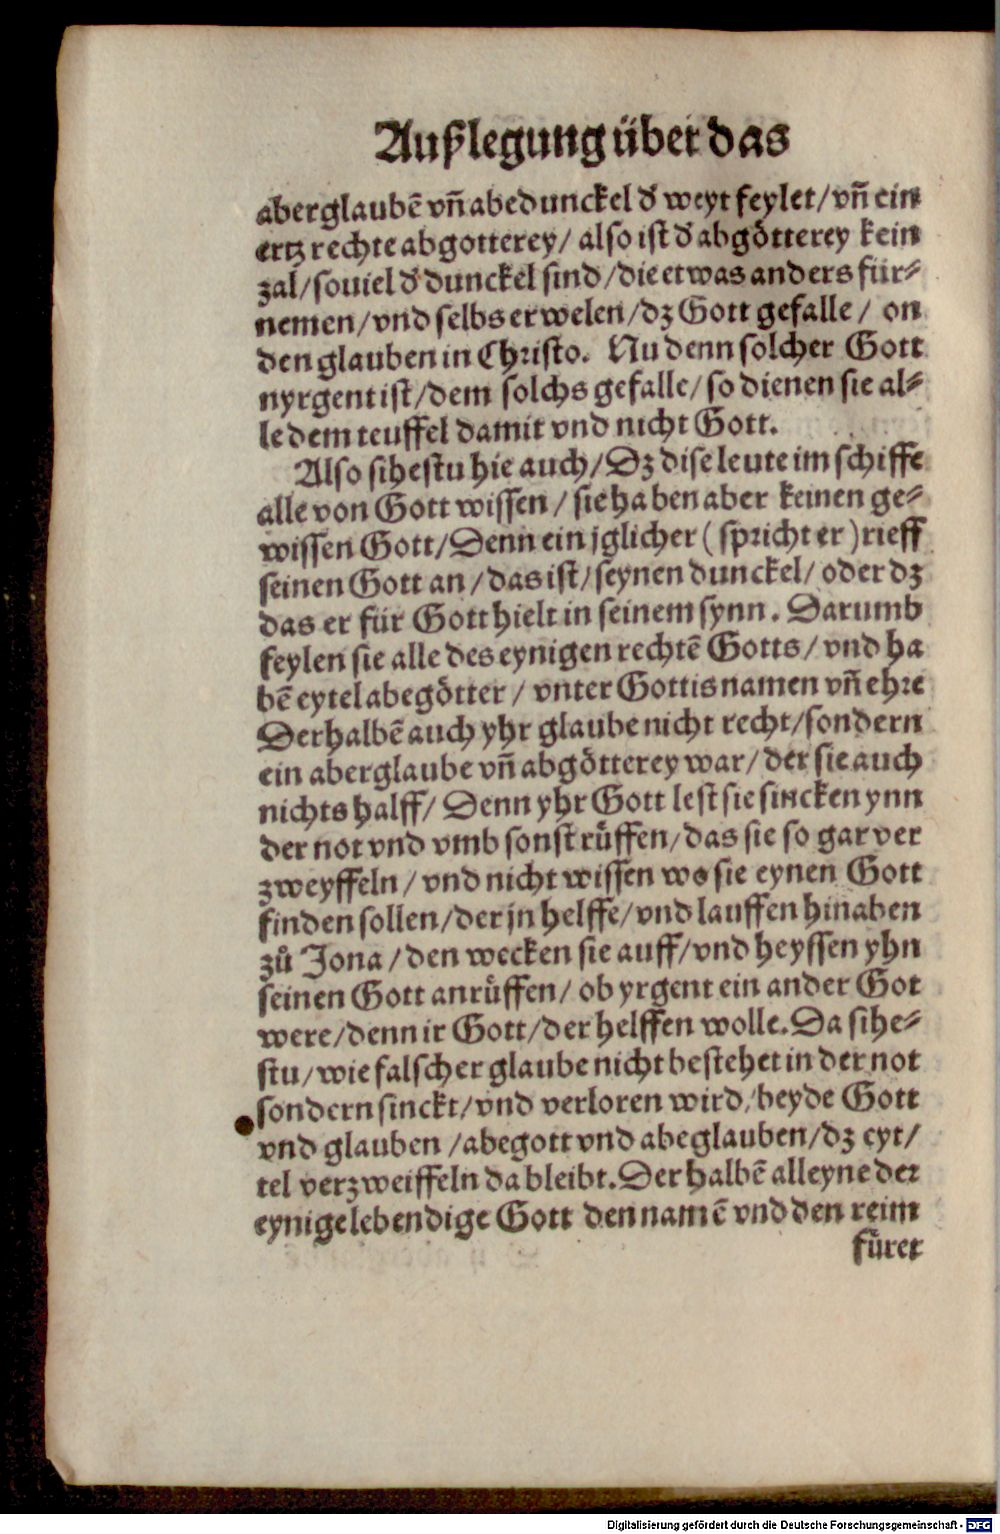 Außlegung über das
aberglaubē vn̄ abedunckel d' weyt feylet / vn̄ ein
ertz rechte abgotterey / also ist d' abgötterey kein
zal / souiel d' dunckel sind / die etwas anders für⸗
nemen / vnd selbs erwelen / dz Gott gefalle / on
den glauben in Christo. Nu denn solcher Gott
nyrgent ist / dem solchs gefalle / so dienen sie al⸗
le dem teuffel damit vnd nicht Gott.
Also sihestu hie auch / Dz dise leute im schiffe
alle von Gott wissen / sie haben aber keinen ge⸗
wissen Gott / Denn ein jglicher ( spricht er ) rieff
seinen Gott an / das ist / seynen dunckel / oder dz
das er für Gott hielt in seinem synn. Darumb
feylen sie alle des eynigen rechtē Gotts / vnd ha
bē eytel abegötter / vnter Gottis namen vn̄ ehre
Derhalbē auch yhr glaube nicht recht / sondern
ein aberglaube vn̄ abgötterey war / der sie auch
nichts halff / Denn yhr Gott lest sie sincken ynn
der not vnd vmb sonst rüffen / das sie so gar ver
zweyffeln / vnd nicht wissen wo sie eynen Gott
finden sollen / der jn helffe / vnd lauffen hinaben
zů Jona / den wecken sie auff / vnd heyssen yhn
seinen Gott anrüffen / ob yrgent ein ander Got
were / denn ir Gott / der helffen wolle. Da sihe⸗
stu / wie falscher glaube nicht bestehet in der not
sondern sinckt / vnd verloren wird / beyde Gott
vnd glauben / abegott vnd abeglauben / dz eyt /
tel verzweiffeln da bleibt. Der halbē alleyne der
eynige lebendige Gott den namē vnd den reim
füret
Digitalisierung gefördert durch die Deutsche Forschungsgemeinschaft - DFG